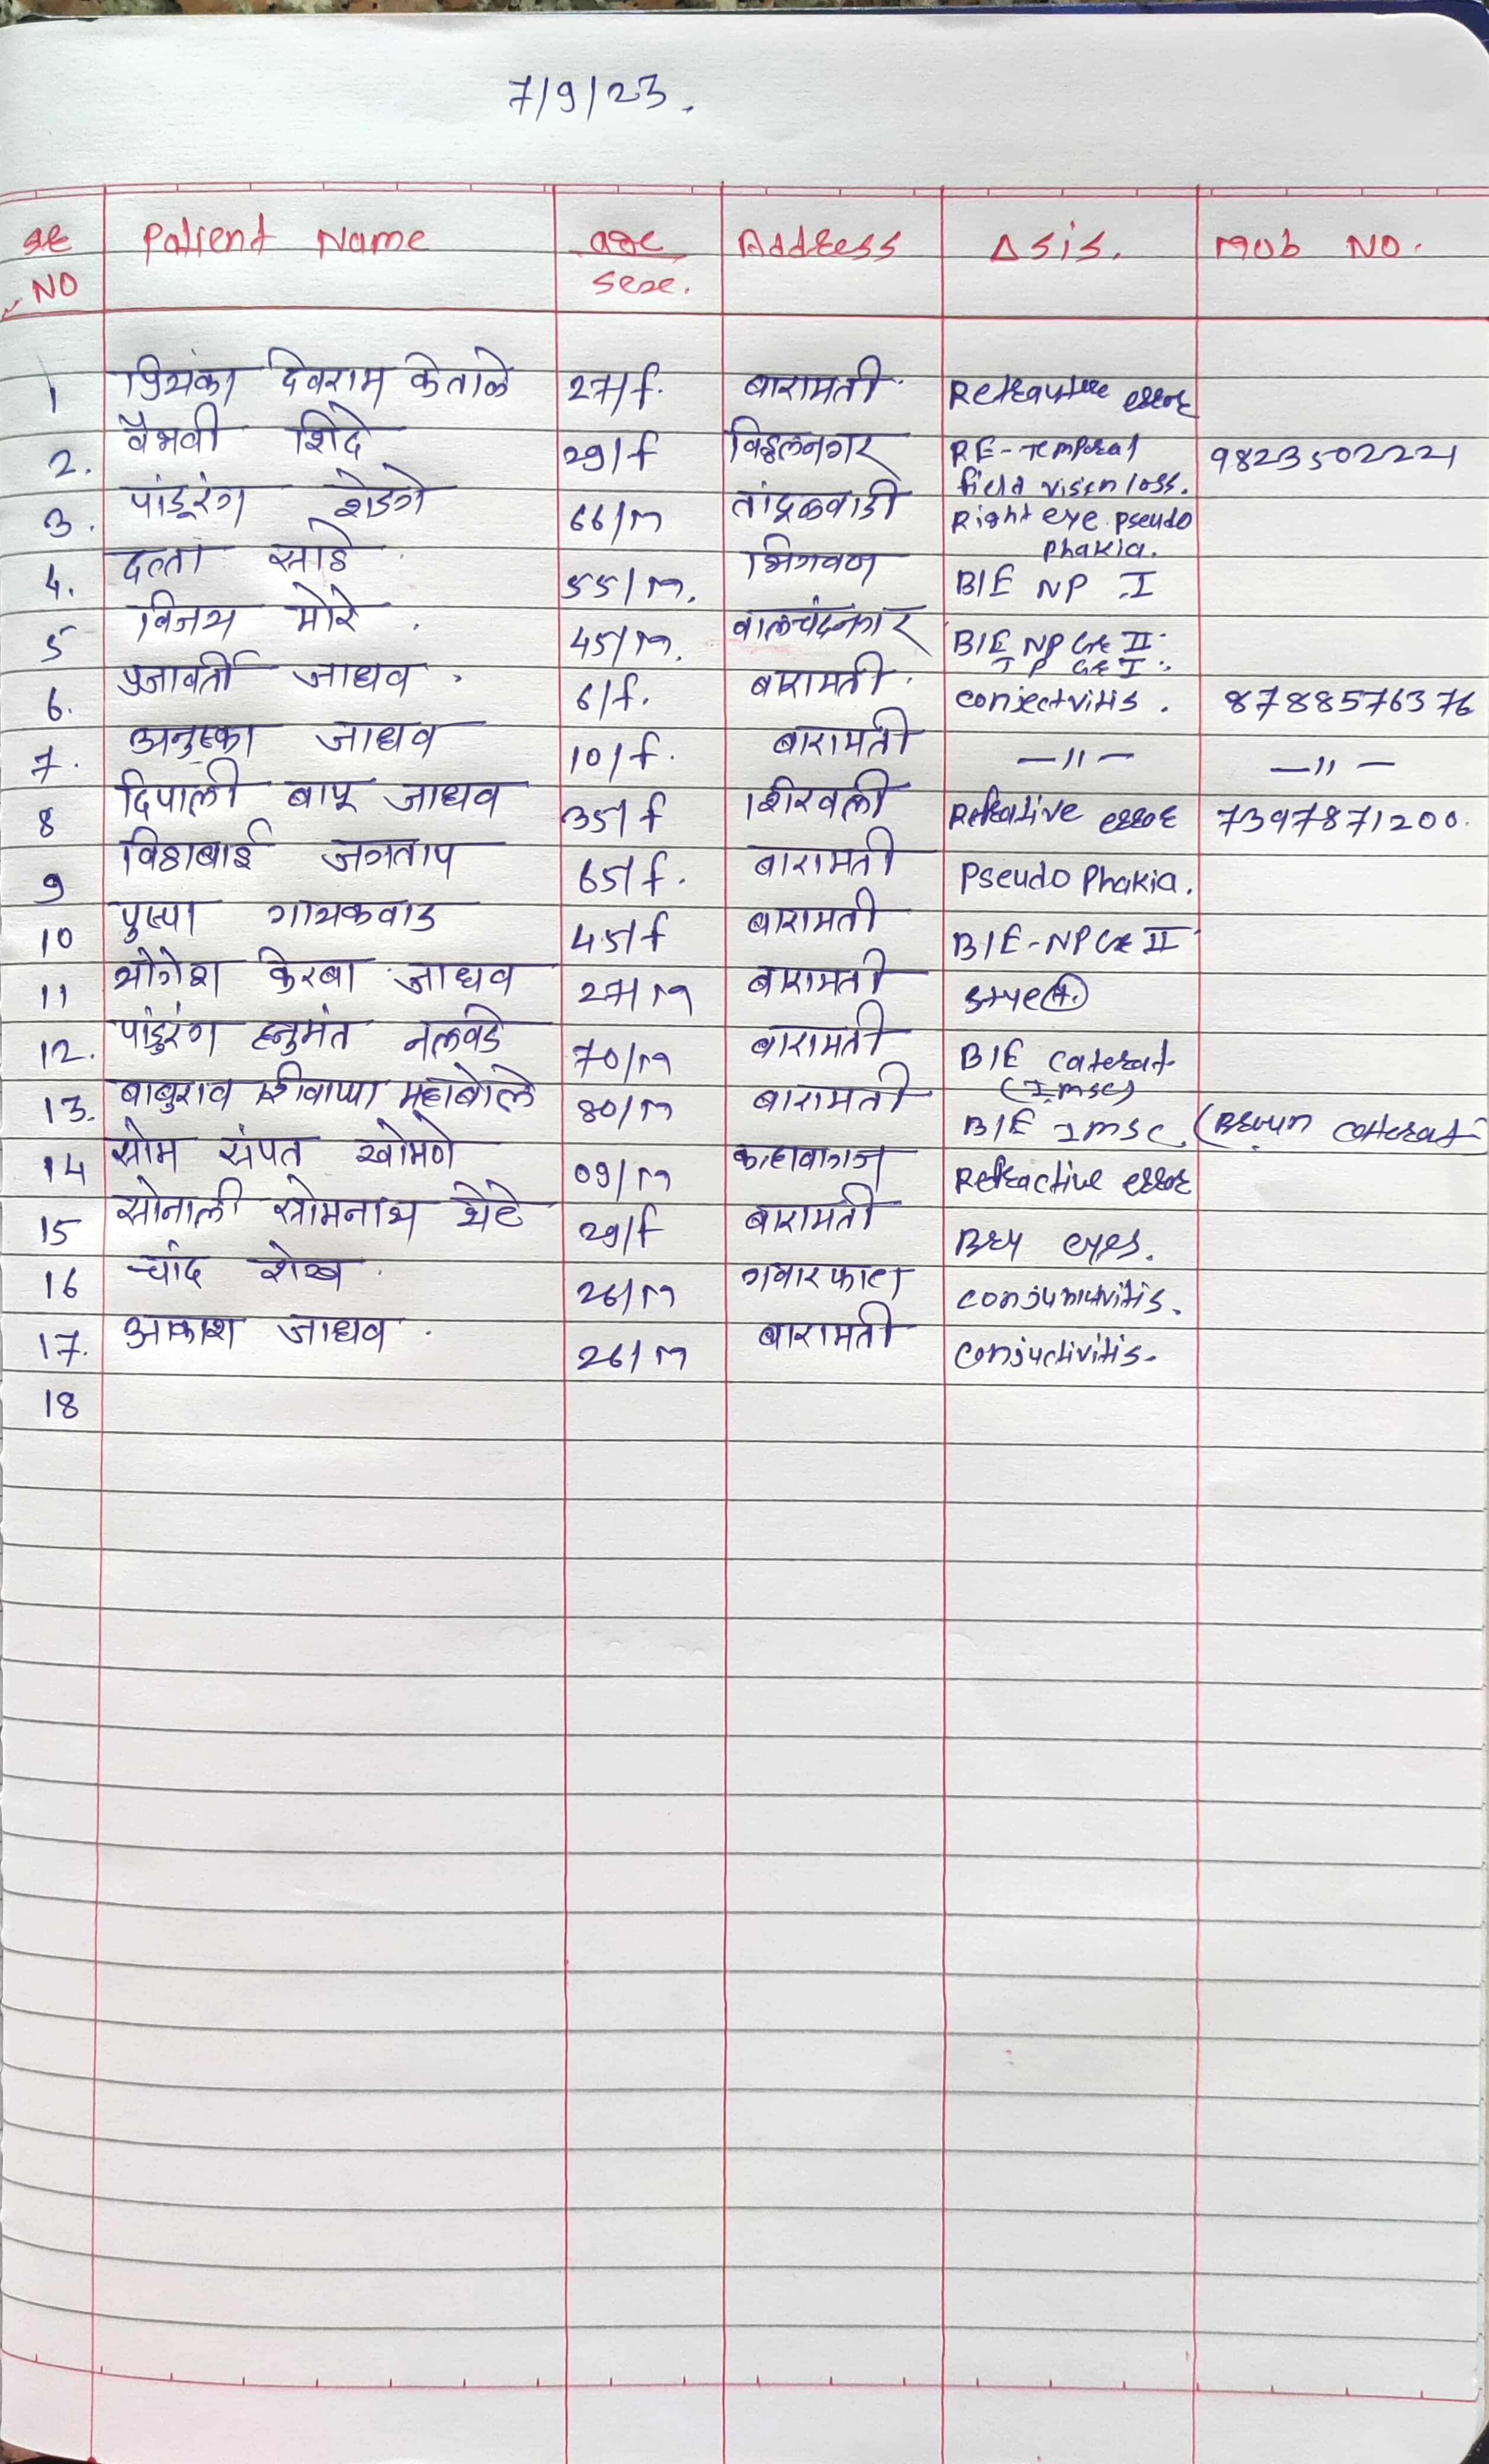 7/9/23.
Sr Patient Name age Address Δsis. Mob NO.
NO sex.
1 प्रियंका देवराम केताळे 27/f. बारामती. Refractive error
2. वैभवी शिंदे 29/f विठ्ठलनगर RE-Temporal 9823502221
field vision loss.
3. पांडूरंग शेडगे 66/M तांदूळवाडी Right eye pseudo
phakia.
4. दत्ता साडे. 55/M. भिगवण B/E NP I
5 विजय मोरे. 45/M. वालचंदनगर B/E NP Gr II.
Gr I.
6. जाधव. 6/f. बारामती. conjectvitis. 8788576376
7. अनुष्का जाधव 10/f. बारामती —॥— —॥—
8 दिपाली बापू जाधव 35/f शिरवली Refrative error 7397871200.
9 विठाबाई जगताप 65/f. बारामती Pseudo Phakia.
10 पुष्पा गायकवाड 45/f बारामती B/E-NP Gr II
11 योगेश केरबा जाधव 27/M बारामती stye
12. पांडुरंग हनुमंत नलवडे 70/M बारामती B/E caterat
(Imsc)
13. बाबुराव शिवाप्पा महाबोले 80/M बारामती B/E Imsc. (Brown catterat
14 सोम संपत खोमणे 09/M कऱ्हावागज Refractive error
15 सोनाली सोमनाथ शेटे 29/f बारामती Dry eyes.
16 चांद शेख. 26/M conjunctvitis.
17. आकाश जाधव. 26/M बारामती conjuctivitis.
18